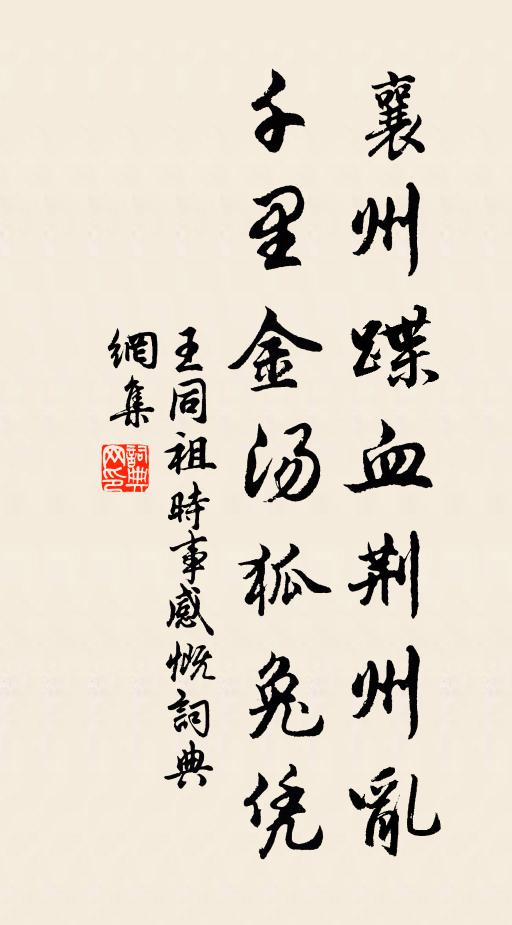 襄州蹀血荆州亂
千里金汤狐兔凭
王同祖時事感慨詞典
網集
詞典
网印